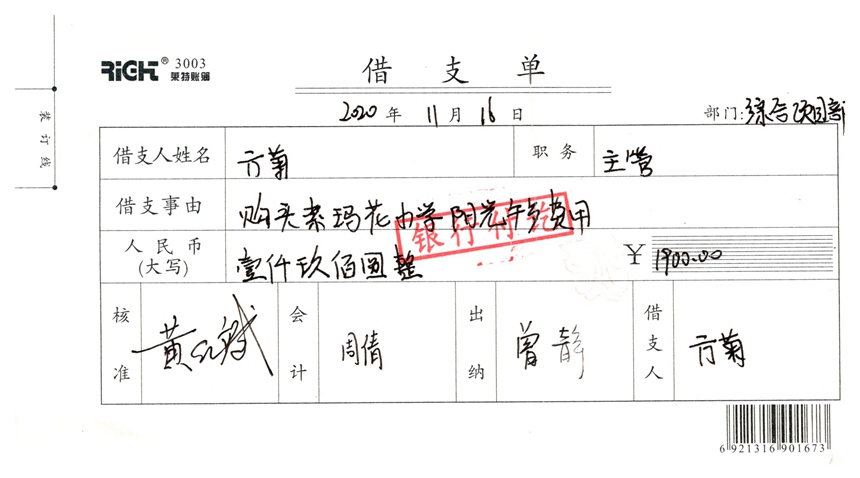 RiGHT® 3003
莱特账簿
借支单
2020年11月16日 部门:综合项目部
装订线
借支人姓名 方菊 职务 主管
借支事由 购买索玛花小学阳光午餐费用
银行付讫
人民币(大写) 壹仟玖佰圆整 ¥1900.00
核准 黄红斌 会计 周倩 出纳 曾静 借支人 方菊
6 921316 901673